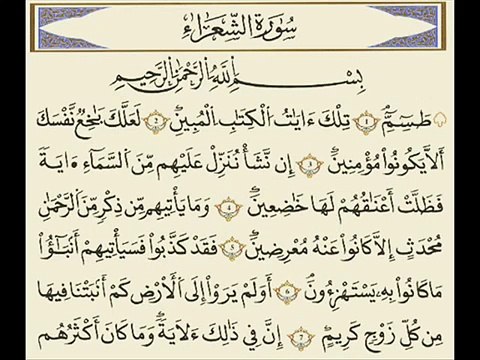 سُورَةُ الشُّعَرَاءِ
بِسْمِ اللَّهِ الرَّحْمَٰنِ الرَّحِيمِ
طسٓمٓ ١ تِلْكَ ءَايَٰتُ ٱلْكِتَٰبِ ٱلْمُبِينِ ٢ لَعَلَّكَ بَٰخِعٌ نَّفْسَكَ
أَلَّا يَكُونُوا۟ مُؤْمِنِينَ ٣ إِن نَّشَأْ نُنَزِّلْ عَلَيْهِم مِّنَ ٱلسَّمَآءِ ءَايَةً
فَظَلَّتْ أَعْنَٰقُهُمْ لَهَا خَٰضِعِينَ ٤ وَمَا يَأْتِيهِم مِّن ذِكْرٍ مِّنَ ٱلرَّحْمَٰنِ
مُحْدَثٍ إِلَّا كَانُوا۟ عَنْهُ مُعْرِضِينَ ٥ فَقَدْ كَذَّبُوا۟ فَسَيَأْتِيهِمْ أَنۢبَٰٓؤُا۟
مَا كَانُوا۟ بِهِۦ يَسْتَهْزِءُونَ ٦ أَوَلَمْ يَرَوْا۟ إِلَى ٱلْأَرْضِ كَمْ أَنۢبَتْنَا فِيهَا
مِن كُلِّ زَوْجٍ كَرِيمٍ ٧ إِنَّ فِى ذَٰلِكَ لَءَايَةً وَمَا كَانَ أَكْثَرُهُم